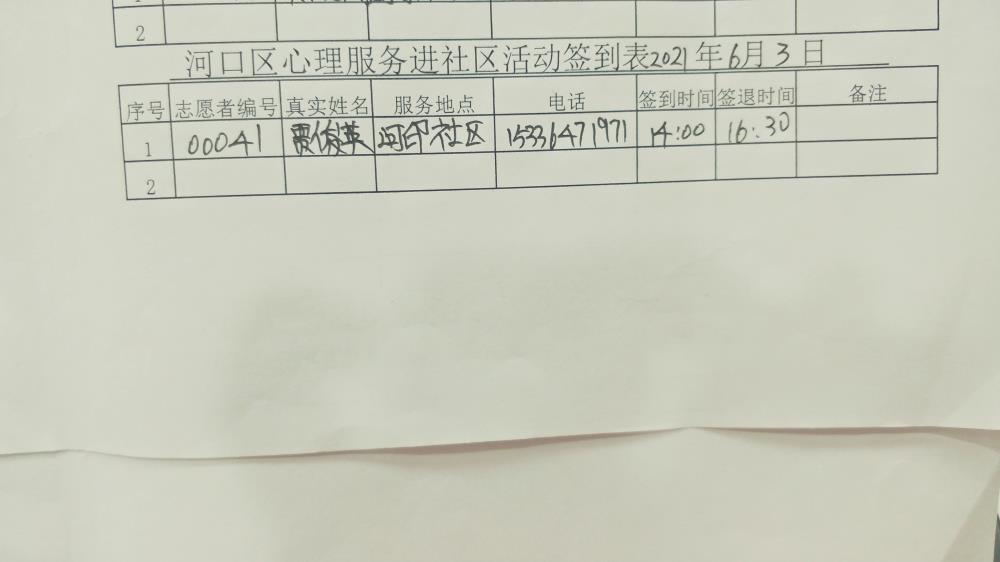 2
河口区心理服务进社区活动签到表2021年6月3日
序号 志愿者编号 真实姓名 服务地点 电话 签到时间 签退时间 备注
1 00041 贾俊英 河印社区 15336471971 14:00 16:30
2